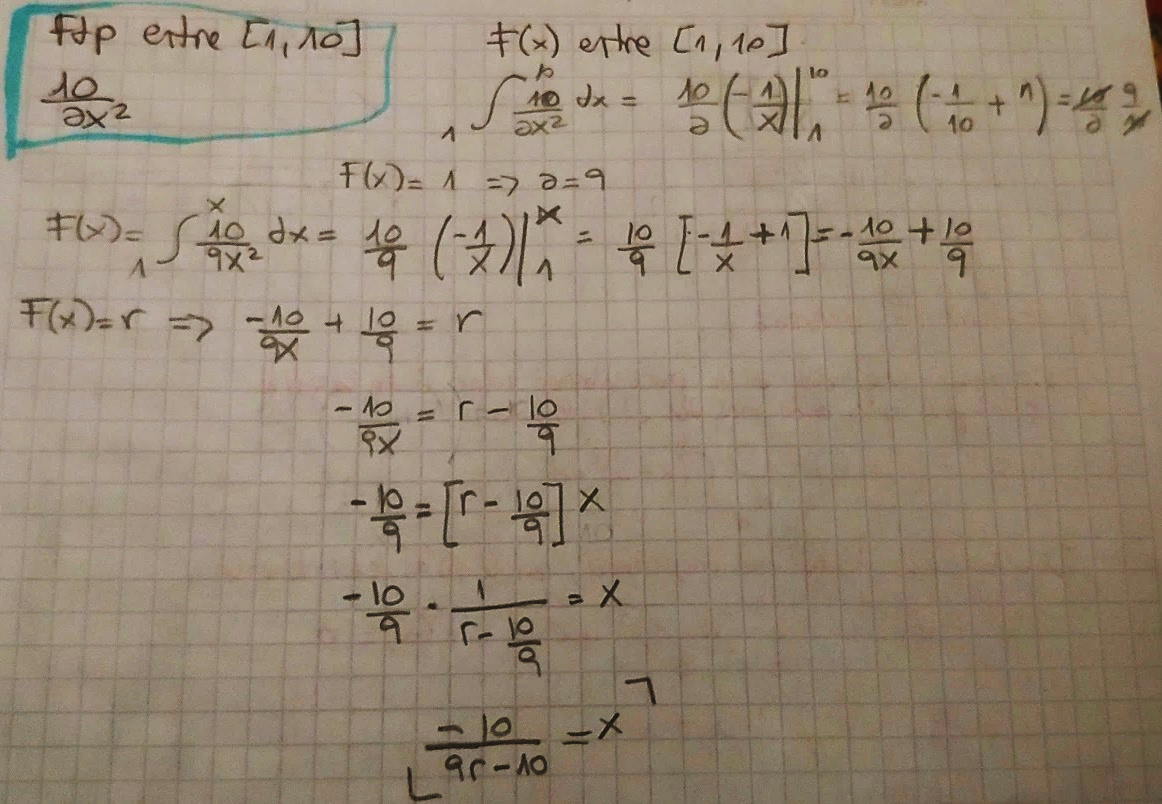 Fdp entre [1,10]
10/ax²
F(x) entre [1,10]
₁∫¹⁰ 10/ax² dx = 10/a (-1/x)|₁¹⁰ = 10/a (-1/10 + 1) = 10/a 9/10
F(x)= 1 => a=9
F(x)= ₁∫ˣ 10/9x² dx = 10/9 (-1/x)|₁ˣ = 10/9 [-1/x +1] = -10/9x + 10/9
F(x)=r => -10/9x + 10/9 = r
-10/9x = r - 10/9
-10/9 = [r - 10/9] x
-10/9 · 1/(r - 10/9) = x
-10/(9r-10) = x